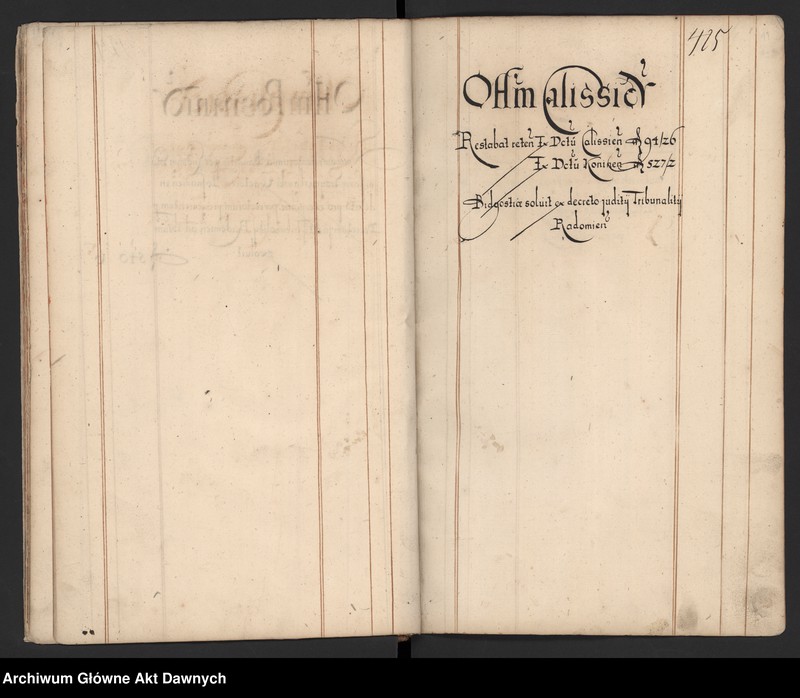 425
Offm Calissien
Restabat reten Ex Dctu Calissien fl 94/26
Ex Dctu Koniken fl 527/2
Bidgostiæ soluit ex decreto judity Tribunality
Radomien
Archiwum Główne Akt Dawnych